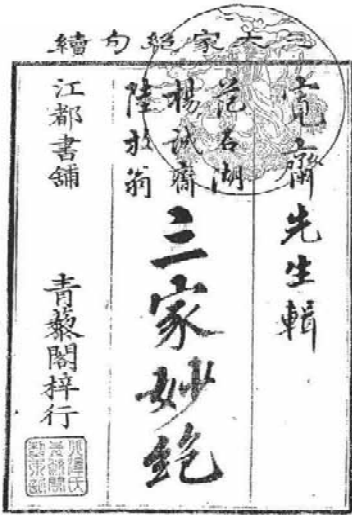 三大家絕句續
寬齋先生輯
范石湖
楊誠齋
陸放翁
三家妙絶
江都書舖 青藜閣梓行